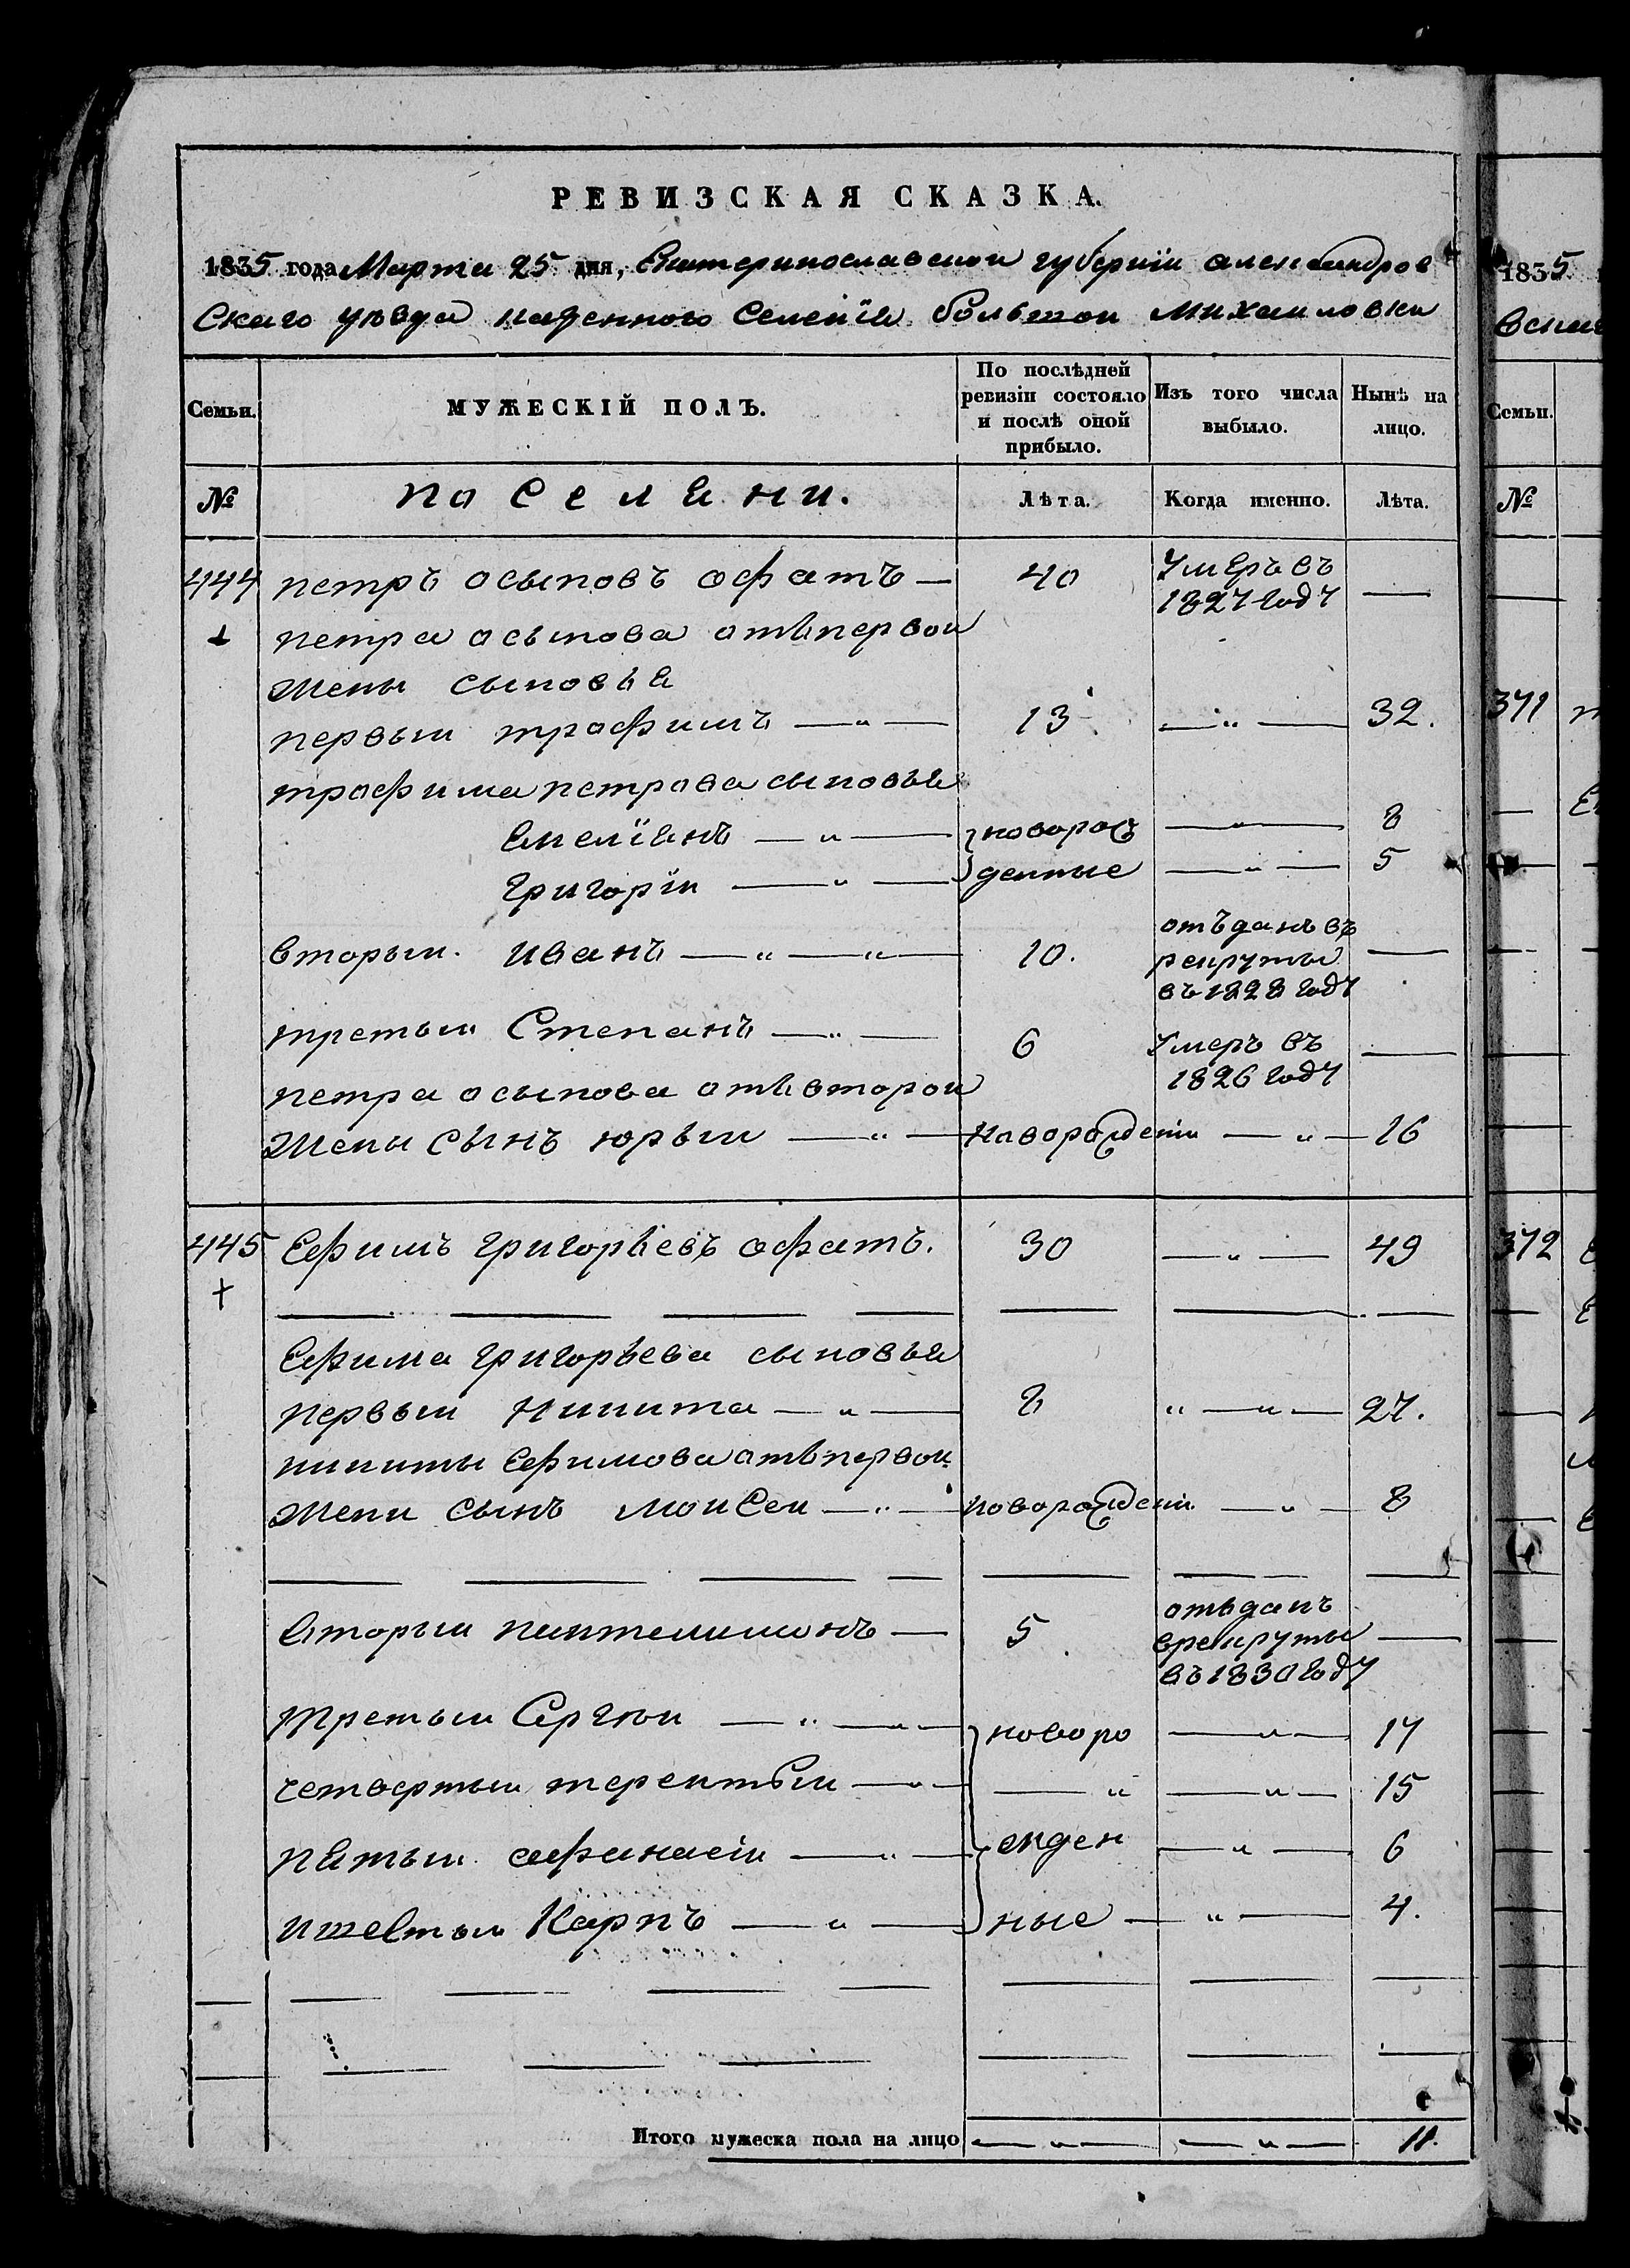 РЕВИЗСКАЯ СКАЗКА.
1835 года Марта 25 дня, Екатеринославской губернїи александров
Скаго уезда казенного Селенїя большои михаиловки
Семьи.
МУЖЕСКІЙ ПОЛЪ.
По послѣдней ревизіи состояло и послѣ оной прибыло.
Изъ того числа выбыло.
Нынѣ на лицо.
№
поселяни.
Лѣта.
Когда именно.
Лѣта.
444 петръ осыповъ офатъ — 40 Умеръ въ 1827 году —
петра осыпова отъпервои
жены сыновья
первыи трофимъ — „ — 13 — „ — 32.
трофима петрова сыновья
Емелїянъ — „ — новорож — „ — 8
Григорїи — „ — денные — „ — 5
вторыи. иванъ — „ — „ — 10. отъданъ въ рекруты въ 1828 году —
третыи Степанъ — „ — 6 Умеръ въ 1826 году —
петра осыпова отъвторои
жены сынъ юрыи — „ — Наворождени — „ — 16
445 Ефимъ григорьевъ офатъ. 30 — „ — 49
Ефима григорьева сыновья
первыи Никита — „ — 8 „ — „ — 27.
никиты Ефимова отъпервои
жени сынъ моисеи — „ — новорождени — „ — 8
вторыи пантелимонъ — 5 отъданъ врекруты въ 1830 году —
третыи Сергѣи — „ — „ — новоро — „ — 17
четвертыи терентыи — „ — — „ — „ — 15
пятыи афанасіи — „ — жден — „ — 6
ишестыи Карпъ — „ — ные — „ — 4.
Итого мужеска пола на лицо — „ — — „ — 11.
1835
Семьи.
№
371
372